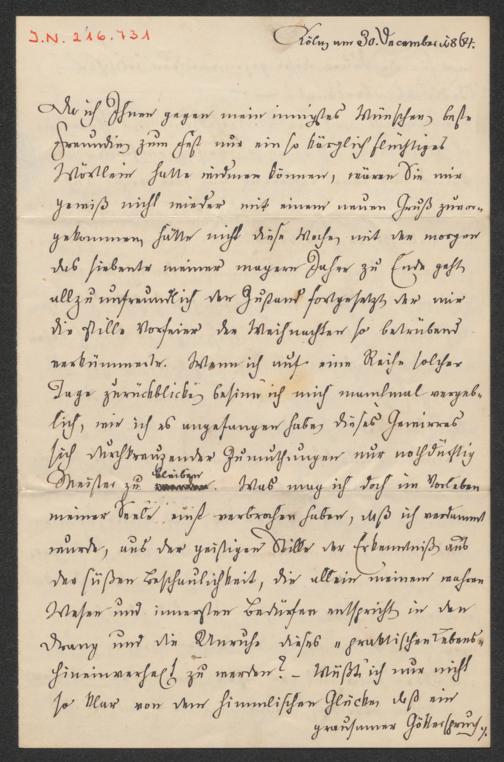 I.N. 216.731
Köln, am 30. December 1864.
Da ich Ihnen gegen mein innigstes Wünschen, beste
Freundin, zum Fest nur ein so kärglich flüchtiges
Wörtlein hatte widmen können, wären Sie mir
gewiß nicht wieder mit einem neuen Gruß zuvor-
gekommen, hätte nicht diese Woche, mit der morgen
das siebente meiner magern Jahre zu Ende geht,
allzu unfreundlich den Zustand fortgesetzt, der mir
die stille Vorfeier der Weihnachten so betrübend
verkümmerte. Wenn ich auf eine Reihe solcher
Tage zurückblicke, besinn ich mich manchmal vergeb-
lich, wie ich es angefangen habe, dieses Gewirres
sich durchkreuzender Zumuthungen nur nothdürftig
Meister zu bleiben. Was mag ich doch im Vorleben
meiner Seele einst verbrochen haben, daß ich verdammt
wurde, aus der geistigen Stille der Erkenntniß aus
der süßen Beschaulichkeit, die allein meinem wahren
Wesen und innersten Bedürfen entspricht in den
Drang und die Unruhe dieses „praktischen Lebens"
hineinverhext zu werden? – Wüßt ich nur nicht
so klar von dem himmlischen Glücke, daß ein
grausamer Götterspruch